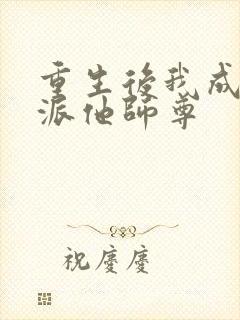 重生後我成
派他師尊
祝慶慶